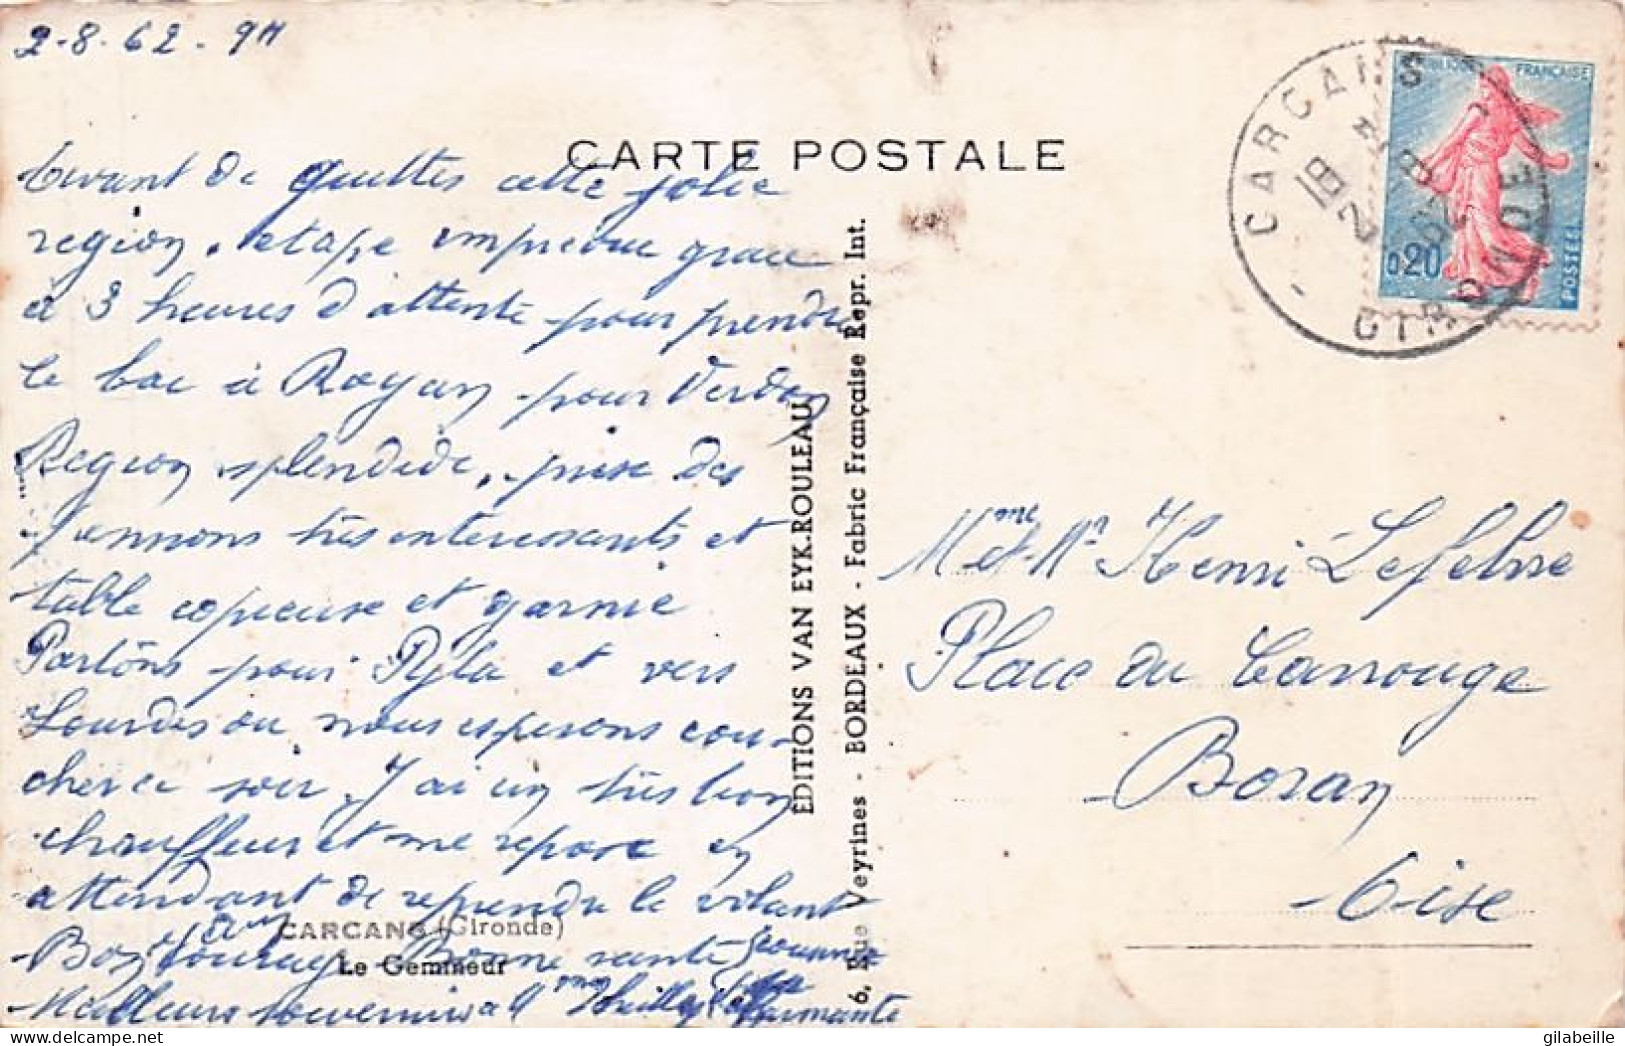 2-8-62. 9H
CARTE POSTALE
avant de quitter cette jolie
region. etape imprevue grace
à 3 heures d'attente pour prendre
le bac à Royan pour Verdon
Region splendide, prise des
très interessants et
table copieuse et garnie
Partons pour Pyla et vers
Lourdes ou nous esperons cou-
cher ce soir. J'ai un très bon
chauffeur et me repose en
attendant de reprendre le volant
CARCANS (Gironde)
Bon courage Bonne santé
Le Gemmeur
Meilleurs souvenirs a Mme
EDITIONS VAN EYK.ROULEAU
6, Rue Veyrines - BORDEAUX - Fabric Française Repr. Int.
CARCANS
GIRONDE
18H
2-8
REPUBLIQUE FRANÇAISE
0,20
POSTES
Mme et Mr Henri Lefebvre
Place du Carrouge
Boran
Oise
gilabeille